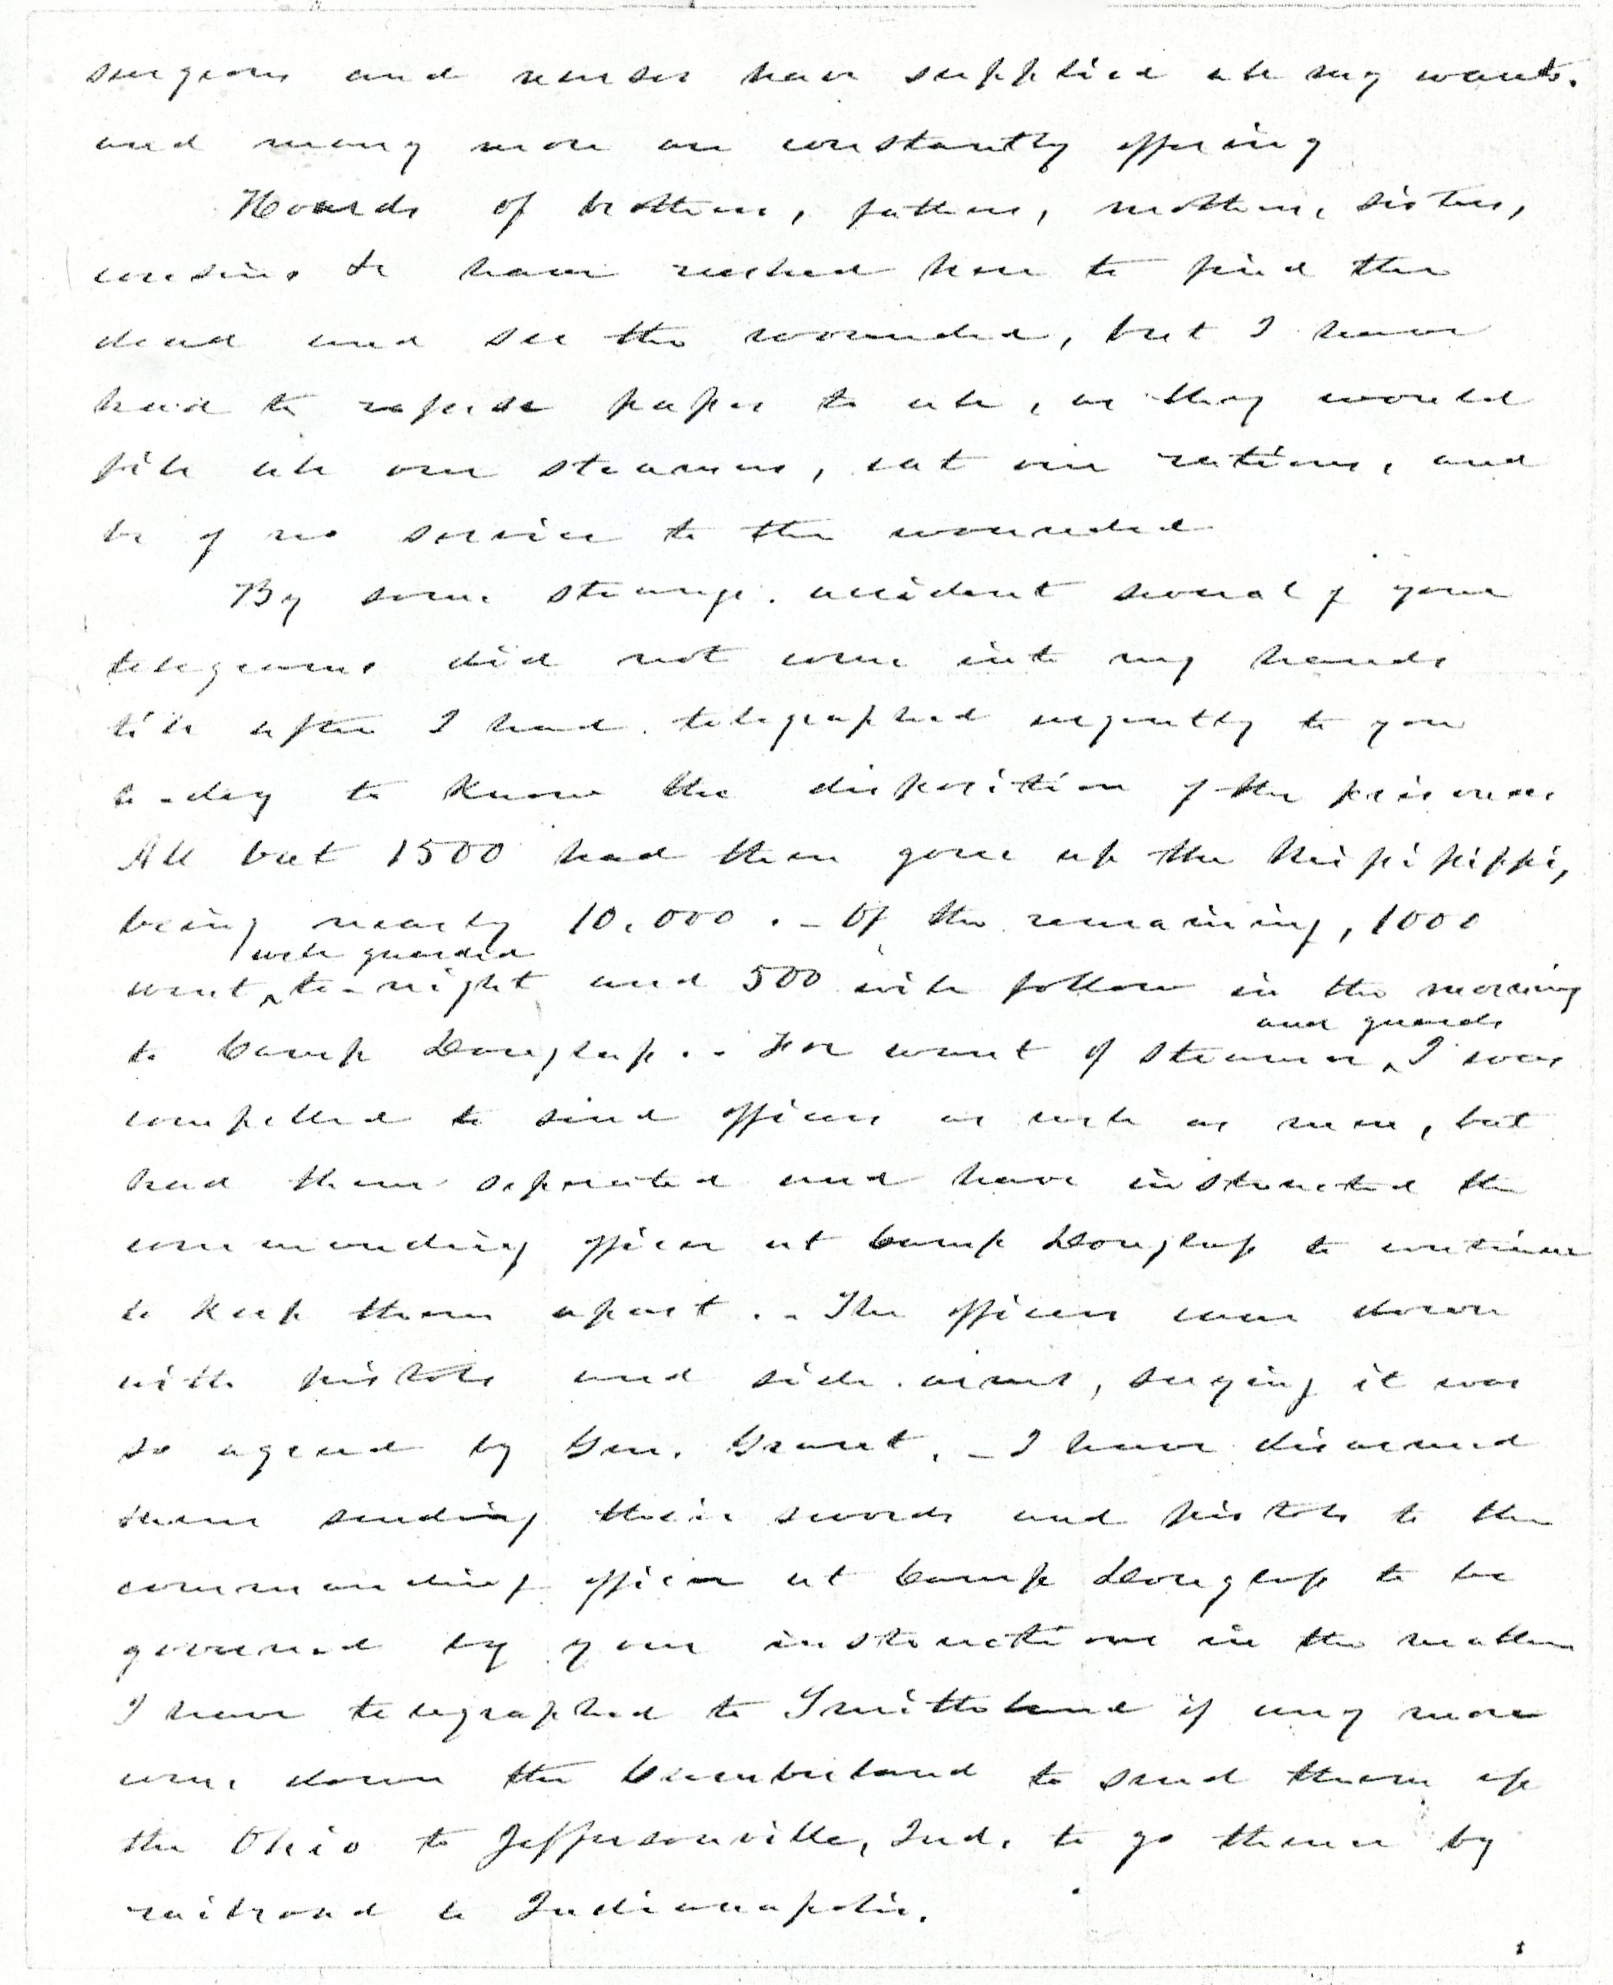 surgeons and nurses have supplied all my wants.
and many more are constantly offering
Hoards of brothers, fathers, mothers, sisters,
cousins &c have reached here to find the
dead and see the wounded, but I have
had to refuse passes to all, as they would
fill all our steamers, eat our rations, and
be of no service to the wounded
By some strange accident several of your
telegrams did not come into my hands
till after I had telegraphed urgently to you
to-day to know the disposition of the prisoners
All but 1500 had then gone up the Mississippi,
being nearly 10,000. - Of the remaining, 1000
well guarded
went ^ to-night and 500 will follow in the morning
and guards
to Camp Douglass. - For want of steamers ^ I was
compelled to send officers as well as men, but
had them separated and have instructed the
commanding officer at Camp Douglass to continue
to keep them apart. - The officers came down
with pistols and side arms, saying it was
so agreed by Gen. Grant. - I have disarmed
them sending their swords and pistols to the
commanding officer at Camp Douglass to be
governed by your instructions in the matter
I have telegraphed to Smithland if any more
come down the Cumberland to send them up
the Ohio to Jeffersonville, Ind. to go thence by
railroad to Indianapolis.